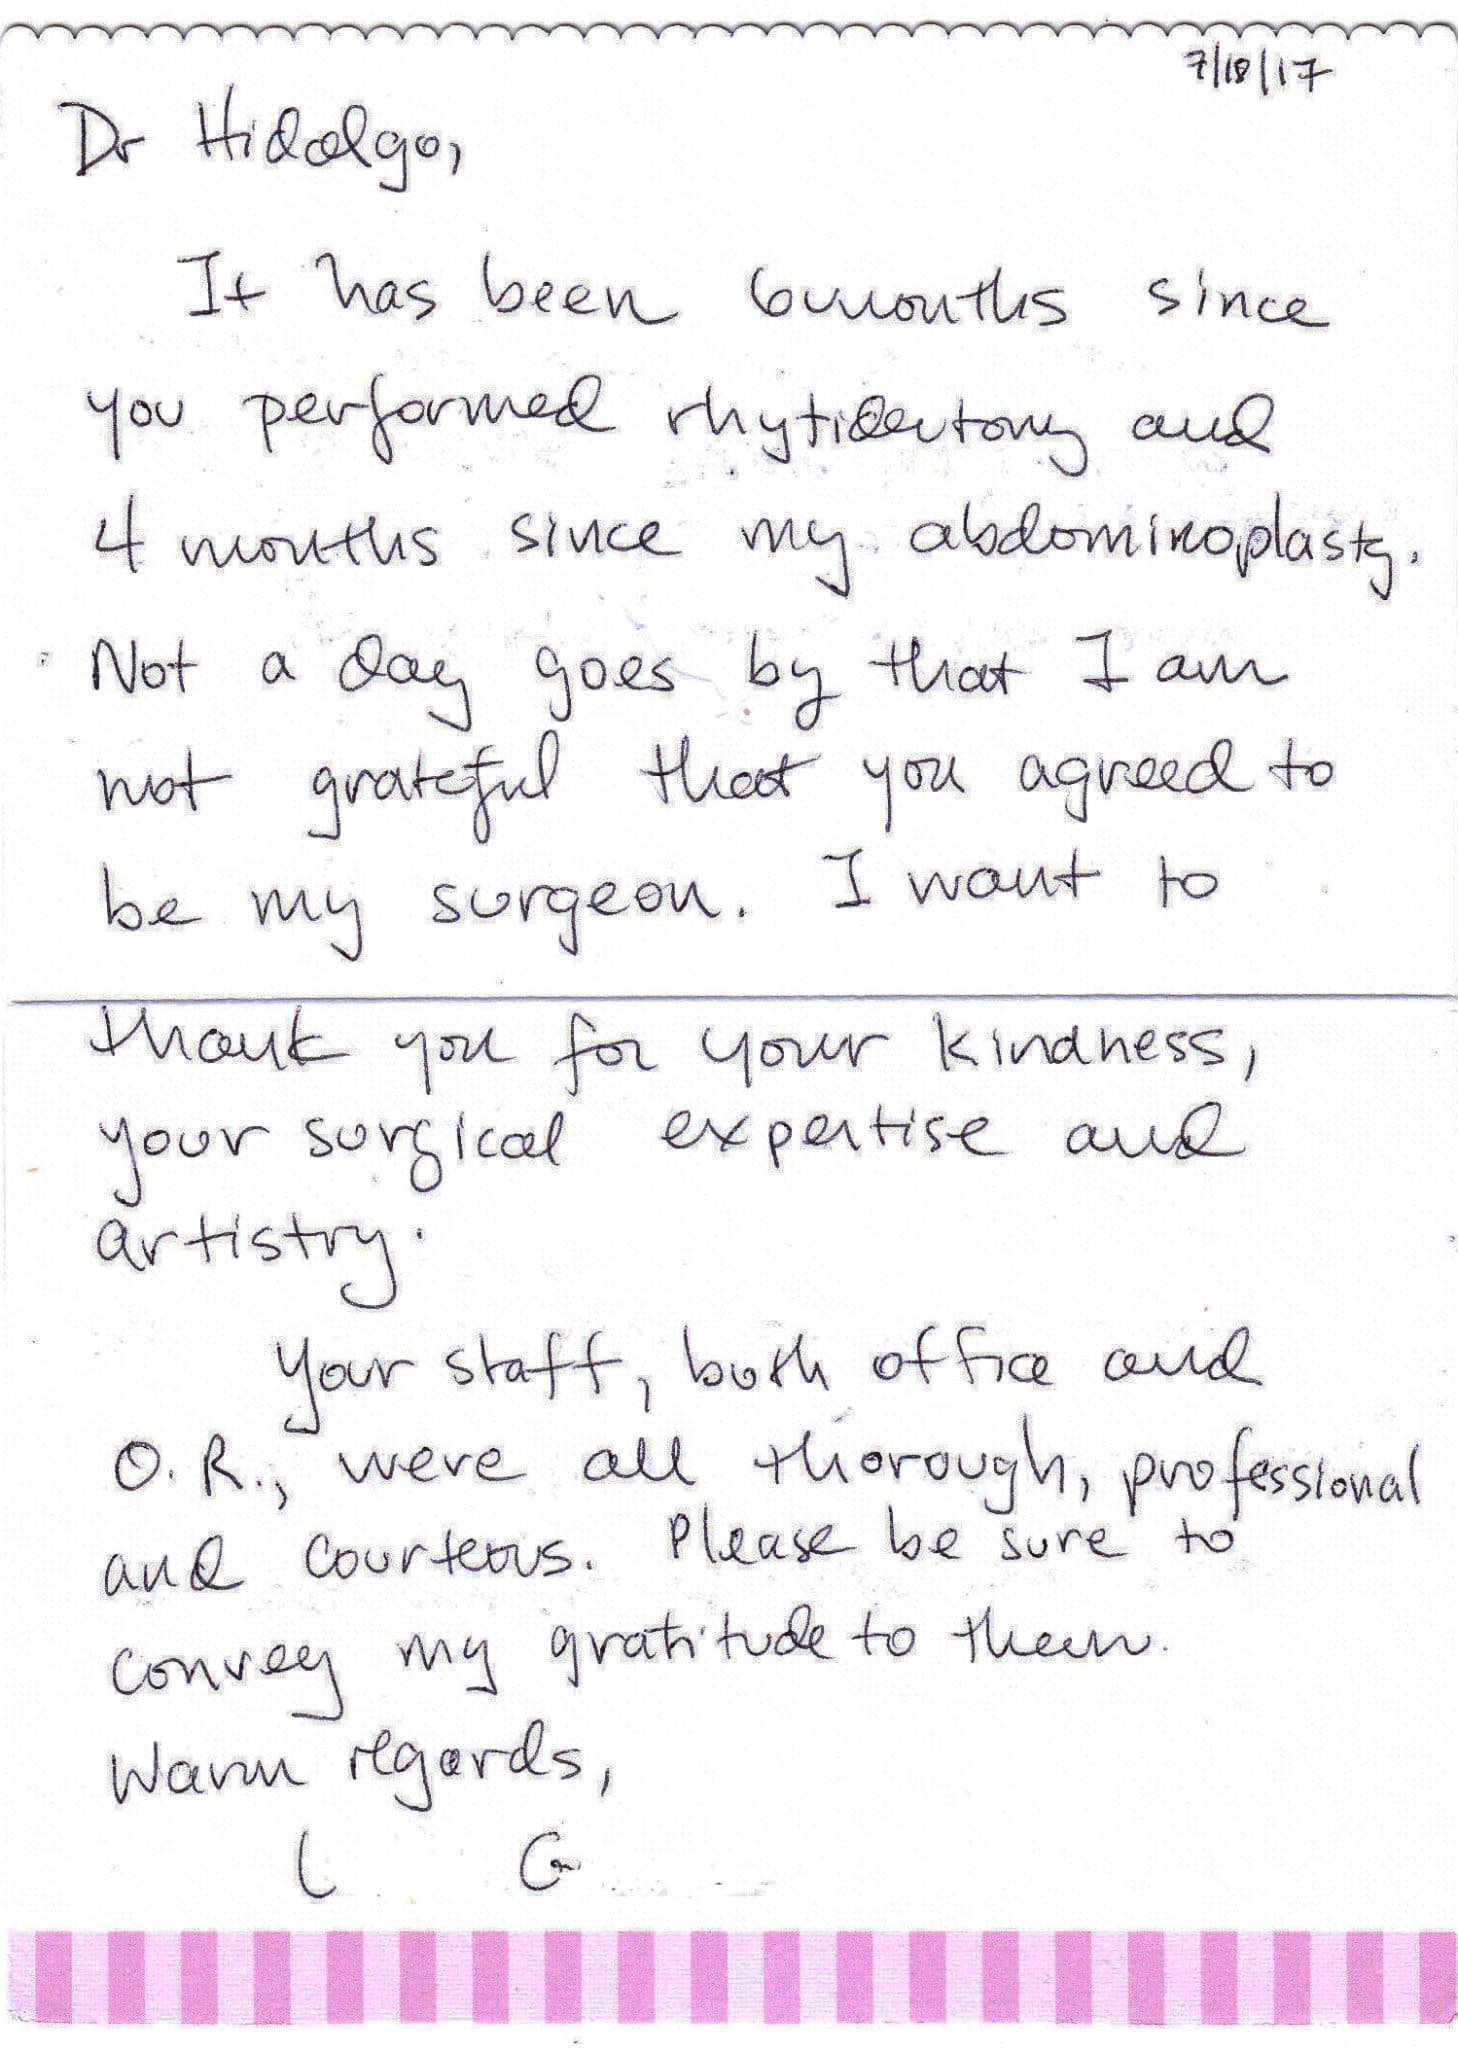 7/18/17
Dr Hidalgo,
It has been 6 months since
you performed rhytidectomy and
4 months since my abdominoplasty.
Not a day goes by that I am
not grateful that you agreed to
be my surgeon. I want to
thank you for your kindness,
your surgical expertise and
artistry.
Your staff, both office and
O.R., were all thorough, professional
and courteous. Please be sure to
convey my gratitude to them.
Warm regards,
L G